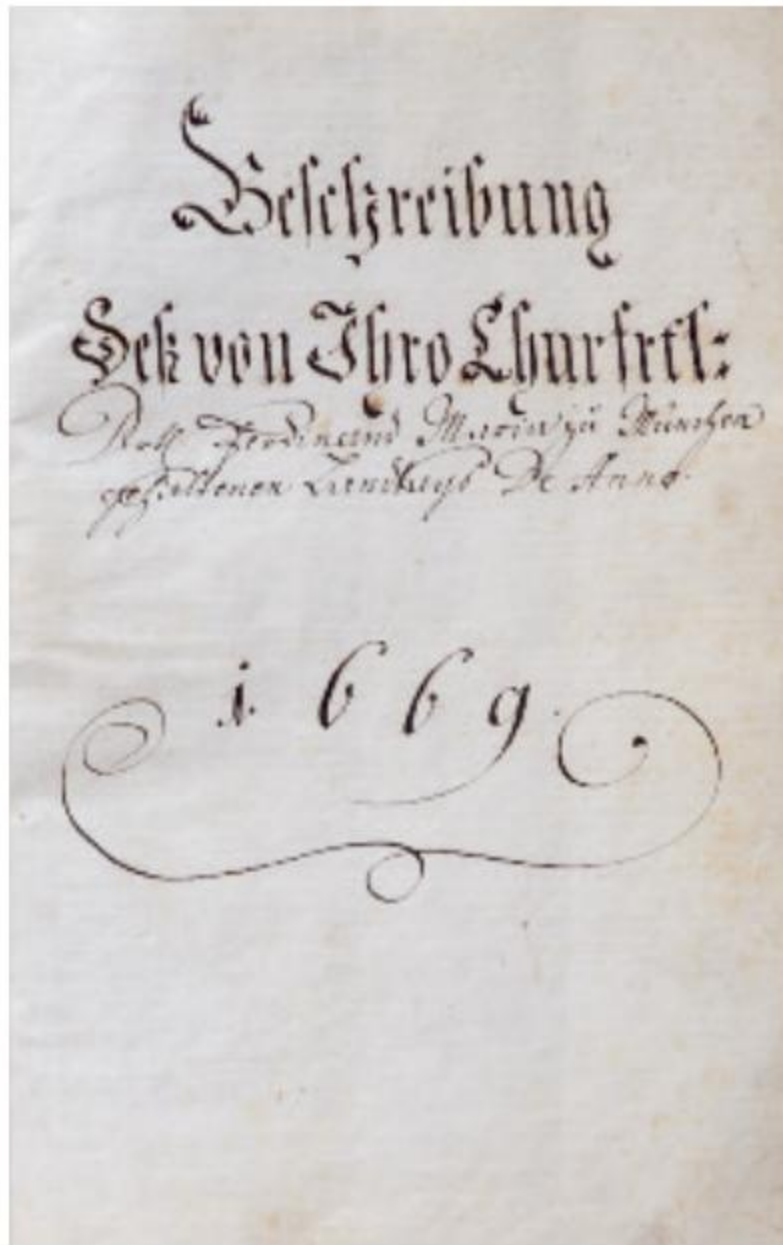 Beschreibung
Deß von Ihro Churfrtl:
Ferdinand Maria zu München
gehaltenen Landtags De Anno.
1669.